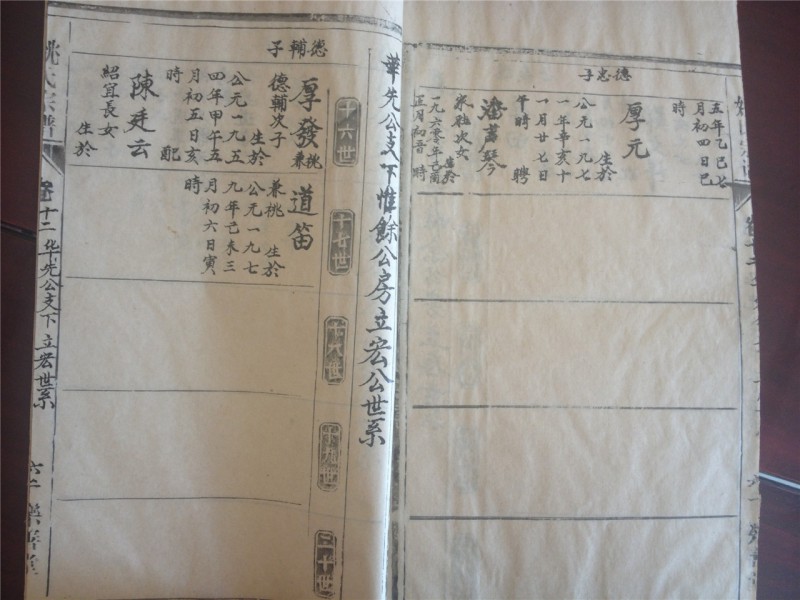 德忠子
五年乙巳七
月初四日巳
時
厚元
生於
公元一九七
一年辛亥十
一月廿七日
午時 聘
次女
生於
一九六零年己酉
正月初
華先公支下惟餘公房立宏公世系
十六世
十七世
十八世
十九世
二十世
德輔子
厚發
兼桃
德輔次子
生於
公元一九五
四年甲午五
月初五日亥
時 配
陳廷云
紹宜長女
生於
道笛
兼桃 生於
公元一九七
九年己未三
月初六日寅
時
姚氏宗譜
卷十二
华先公支下立宏世系